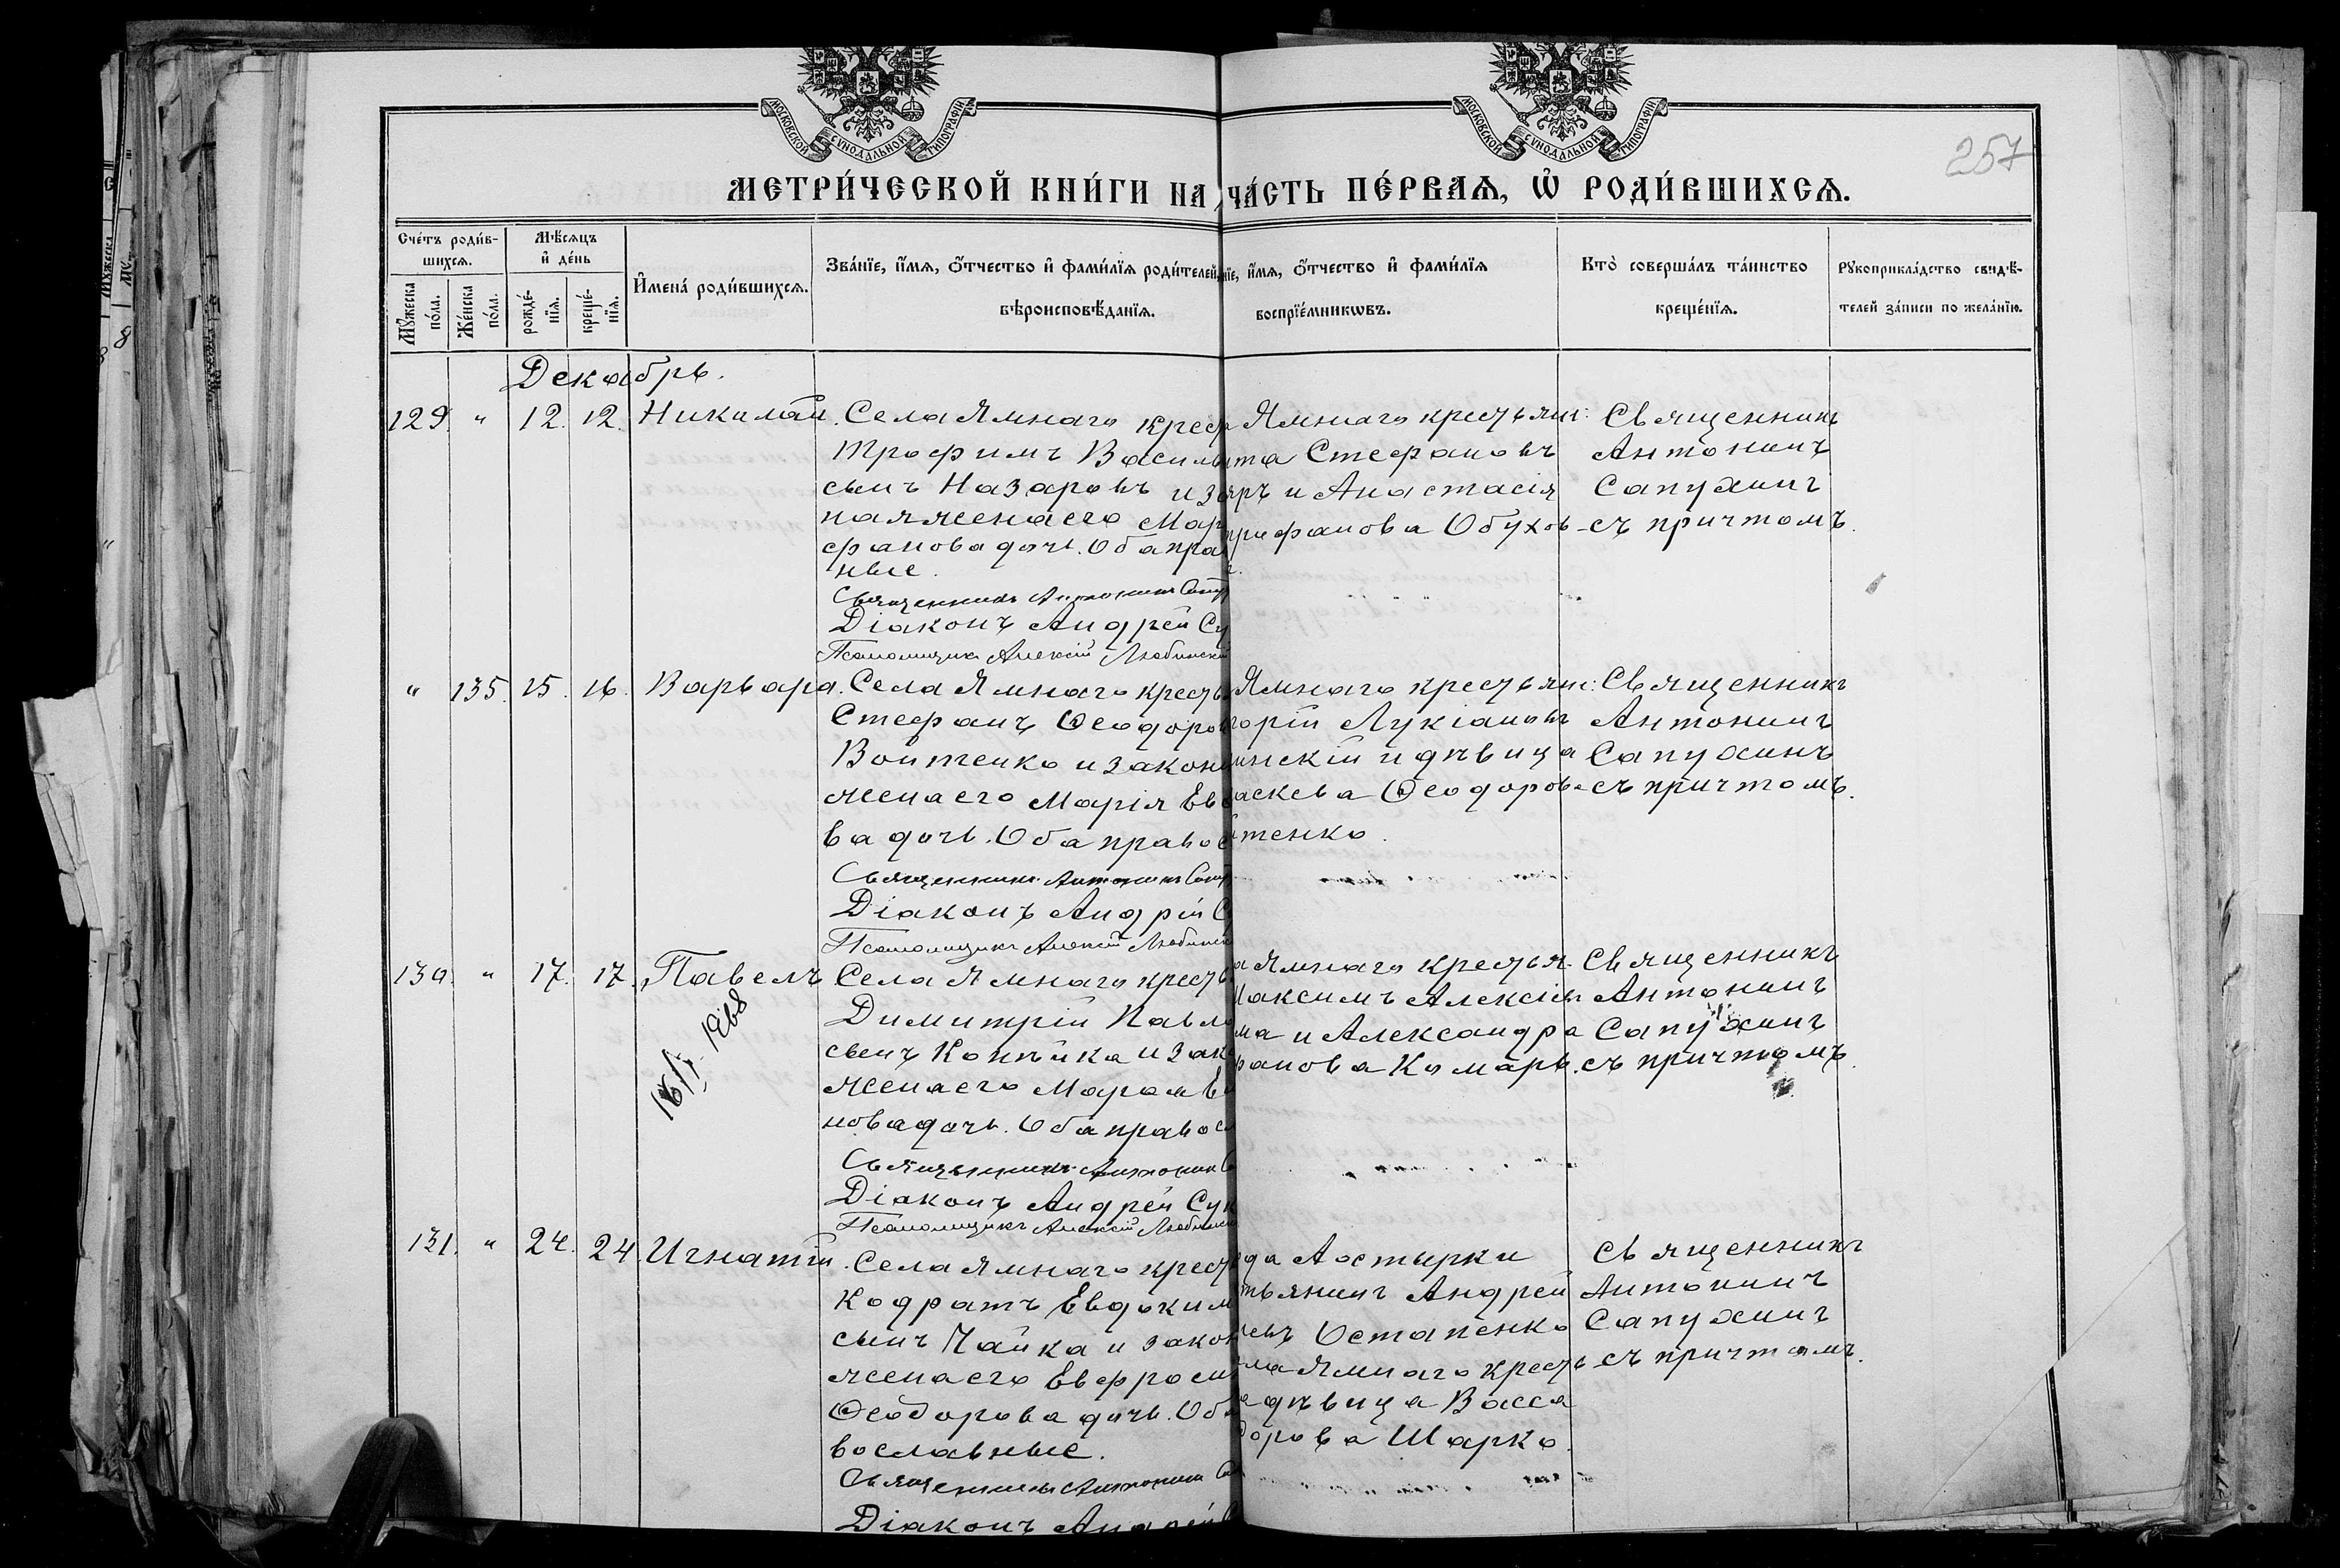 МОСКОВСКОЙ СѴНОДАЛЬНОЙ ТИПОГРАФІИ
МОСКОВСКОЙ СѴНОДАЛЬНОЙ ТИПОГРАФІИ
257
МЕТРИ́ЧЕСКОЙ КНИ́ГИ НА ЧА́СТЬ ПЕ́РВАѦ, Ѡ҆ РОДИ́ВШИХСѦ.
Сче́тъ роди́в-
шихсѧ.
Мѣ́сѧцъ
и҆ де́нь
Мꙋ́жеска
по́ла.
Же́нска
по́ла.
рожде́-
нїѧ.
креще́-
нїѧ.
И҆мена́ роди́вшихсѧ.
Зва́нїе, и҆́мѧ, ѻ҆́тчество и҆ фами́лїѧ роди́телей,
вѣроисповѣ́данїѧ.
нїе, и҆́мѧ, ѻ҆́тчество и҆ фами́лїѧ
воспрїе́мникѡвъ.
Кто̀ соверша́лъ та́инство
креще́нїѧ.
Рꙋкоприкла́дство свидѣ́-
телей за́писи по жела́нїю.
Декабрь.
129. " 12. 12. Николай. Села Ямнаго крест
Трофимъ Василь
сынъ Назаровъ и за
ная жена его Мар
фанова дочь. Оба пра
ные.
Священникъ Антонинъ Сапу
Діаконъ Андрей Су
Псаломщикъ Алексій Любинскій
Ямнаго крестьян:
та Стефановъ
яръ и Анастасія
трифанова Обухов
Священникъ
Антонинъ
Сапухинъ
съ причтомъ.
" 135. 15. 16. Варвара. Села Ямнаго кресть
Стефанъ Ѳеодоров
Войтенко и закон
жена его Марія Ев
ва дочь. Оба правос
Священникъ Антонинъ Сапу
Діаконъ Андрей С
Псаломщикъ Алексій Любинск
Ямнаго крестьян:
горій Лукіановъ
инскій и дѣвица
аскева Ѳеодоров
тенко.
Священникъ
Антонинъ
Сапухинъ
съ причтомъ.
130. " 17. 17. Павелъ Села Ямнаго кресть
Димитрій Павло
сынъ Копѣйка и зак
жена его Марѳа Ев
нова дочь. Оба правосл
Священникъ Антонин С
Діаконъ Андрей Сук
Псаломщикъ Алексій Любинск
1968
а Ямнаго крестья
Максимъ Алексіев
ма и Александра
фанова Комаръ.
Священникъ
Антонинъ
Сапухинъ
съ причтомъ.
131. " 24. 24. Игнатій. Села Ямнаго кресть
Кодратъ Евдоким
сынъ Чайка и закон
жена его Евфроси
Ѳеодорова дочь. Оба
вославные.
Священникъ Антонинъ Сап
Діаконъ Андрей С
да Ахтырки
тьянинъ Андрей
евъ Остапенко
ела Ямнаго кресть
а дѣвица Васса
дорова Шарко.
Священникъ
Антонинъ
Сапухинъ
съ причтомъ.